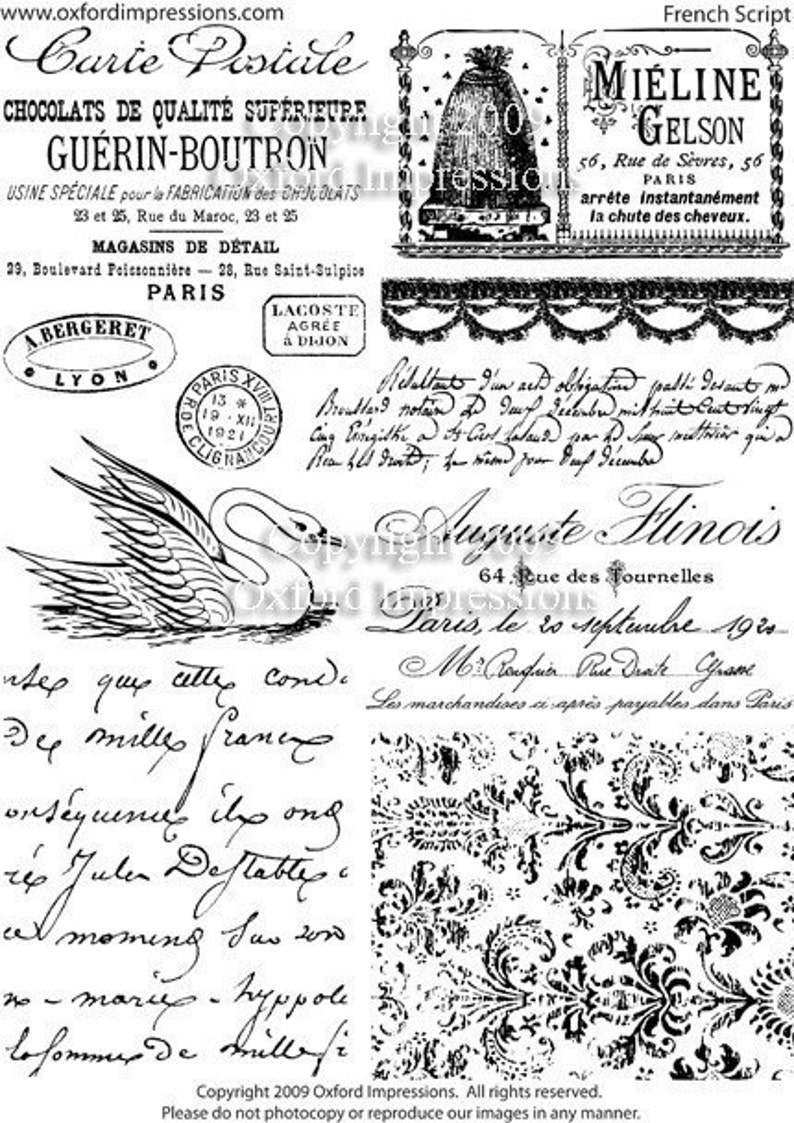 www.oxfordimpressions.com
French Script
Carte Postale
CHOCOLATS DE QUALITÉ SUPÉRIEURE
GUÉRIN-BOUTRON
USINE SPÉCIALE pour la FABRICATION des CHOCOLATS
23 et 25, Rue du Maroc, 23 et 25
MAGASINS DE DÉTAIL
29, Boulevard Poissonnière — 28, Rue Saint-Sulpice
PARIS
MIÉLINE
GELSON
56, Rue de Sèvres, 56
PARIS
arrête instantanément
la chute des cheveux.
Copyright 2009
Oxford Impressions
A. BERGERET
LYON
LACOSTE
AGRÉE
à DIJON
PARIS XVIII
13 *
19 - XII
1921
R. DE CLIGNANCOURT
Résultant d'un acte obligation passé devant
notaire le Deuf décembre mil huit Cent Vingt
Cinq a St
droits; le même jour Deuf décembre
Auguste Flinois
64 Rue des Tournelles
Copyright 2009
Oxford Impressions
Paris, le 20 septembre 1920
Mr. Rue Droite
Les marchandises ci-après payables dans Paris
que cette cond
De mille francs
onséquence ils ont
Jules Destable
ce moment
marie - hyppol
la somme De mille
Copyright 2009 Oxford Impressions. All rights reserved.
Please do not photocopy or reproduce our images in any manner.